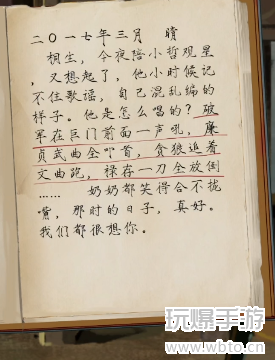 二〇一七年三月 晴
桐生，今夜陪小哲观星
，又想起了，他小时候记
不住歌谣，自己混乱编的
样子。他是怎么唱的？破
军在巨门前面一声吼，廉
贞武曲全叩首，贪狼追着
文曲跑，禄存一刀全放倒
…… 奶奶都笑得合不拢
嘴，那时的日子，真好。
我们都很想你。
玩爆手游
www.wbto.cn